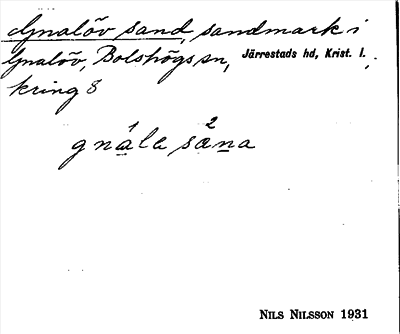 Gnalöv sand, sandmark i
Gnalöv, Bolshögs sn, Järrestads hd, Krist. l.,
kring 8
gnála sä̀na
NILS NILSSON 1931